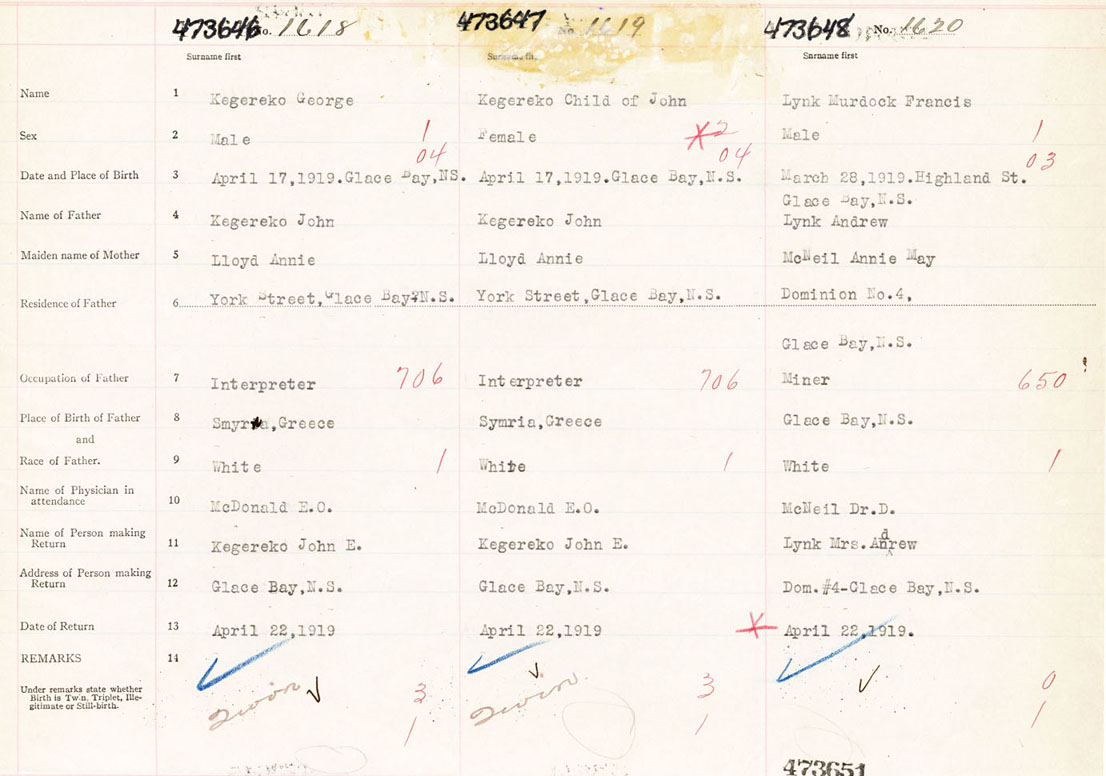 473646 No. 1618 473647 No. 1619 473648 No. 1620
Surname first Surname first Surname first
Name 1 Kegereko George Kegereko Child of John Lynk Murdock Francis
Sex 2 Male 1 Female X 2 Male 1
04 04 03
Date and Place of Birth 3 April 17,1919.Glace Bay,NS. April 17,1919.Glace Bay,N.S. March 28,1919.Highland St.
Glace Bay,N.S.
Name of Father 4 Kegereko John Kegereko John Lynk Andrew
Maiden name of Mother 5 Lloyd Annie Lloyd Annie McNeil Annie May
Residence of Father 6 York Street,Glace Bay,N.S. York Street,Glace Bay,N.S. Dominion No.4,
Glace Bay,N.S.
Occupation of Father 7 Interpreter 706 Interpreter 706 Miner 650
Place of Birth of Father 8 Smyrna,Greece Symria,Greece Glace Bay,N.S.
and
Race of Father. 9 White 1 White 1 White 1
Name of Physician in
attendance 10 McDonald E.O. McDonald E.O. McNeil Dr.D.
Name of Person making
Return 11 Kegereko John E. Kegereko John E. Lynk Mrs.Andrew
Address of Person making
Return 12 Glace Bay,N.S. Glace Bay,N.S. Dom.#4-Clace Bay,N.S.
Date of Return 13 April 22,1919 April 22,1919 X April 22,1919.
REMARKS 14
Under remarks state whether
Birth is Twin, Triplet, Ille-
gitimate or Still-birth.
Twin 3 Twin 3 0
1 1 1
473651